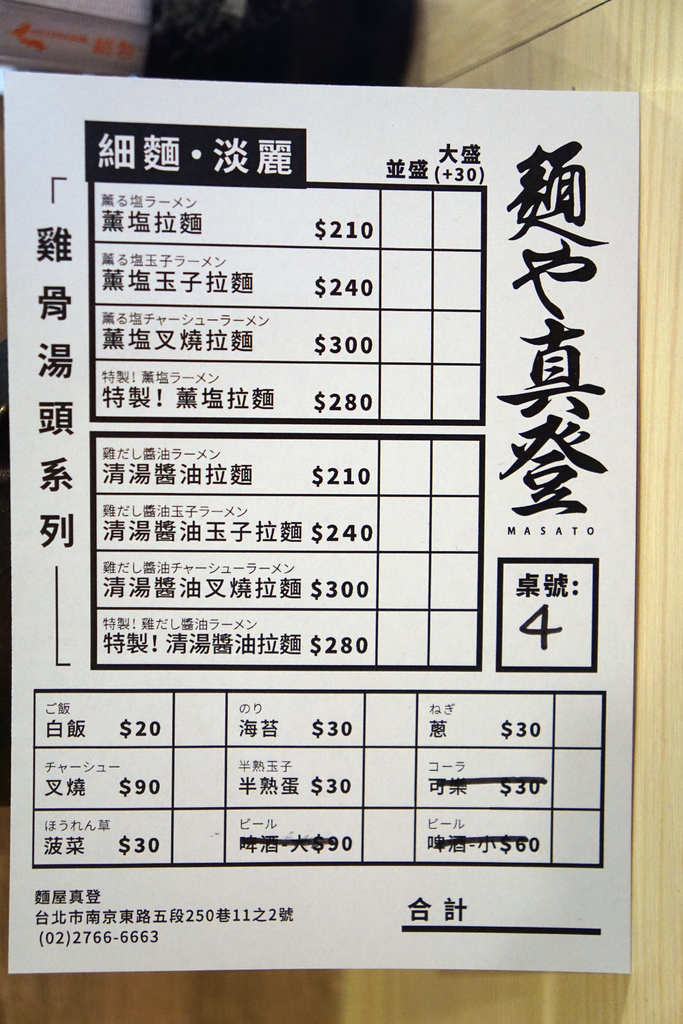 細麵・淡麗
並盛
大盛
(+30)
「雞骨湯頭系列」
薫る塩ラーメン
薰塩拉麵 $210
薫る塩玉子ラーメン
薰塩玉子拉麵 $240
薫る塩チャーシューラーメン
薰塩叉燒拉麵 $300
特製！薫塩ラーメン
特製！薰塩拉麵 $280
雞だし醬油ラーメン
清湯醬油拉麵 $210
雞だし醬油玉子ラーメン
清湯醬油玉子拉麵 $240
雞だし醬油チャーシューラーメン
清湯醬油叉燒拉麵 $300
特製！雞だし醬油ラーメン
特製！清湯醬油拉麵 $280
麺や真登
MASATO
桌號:
4
ご飯
白飯 $20
のり
海苔 $30
ねぎ
蔥 $30
チャーシュー
叉燒 $90
半熟玉子
半熟蛋 $30
コーラ
可樂 $30
ほうれん草
菠菜 $30
ビール
啤酒-大$90
ビール
啤酒-小$60
麵屋真登
台北市南京東路五段250巷11之2號
(02)2766-6663
合計